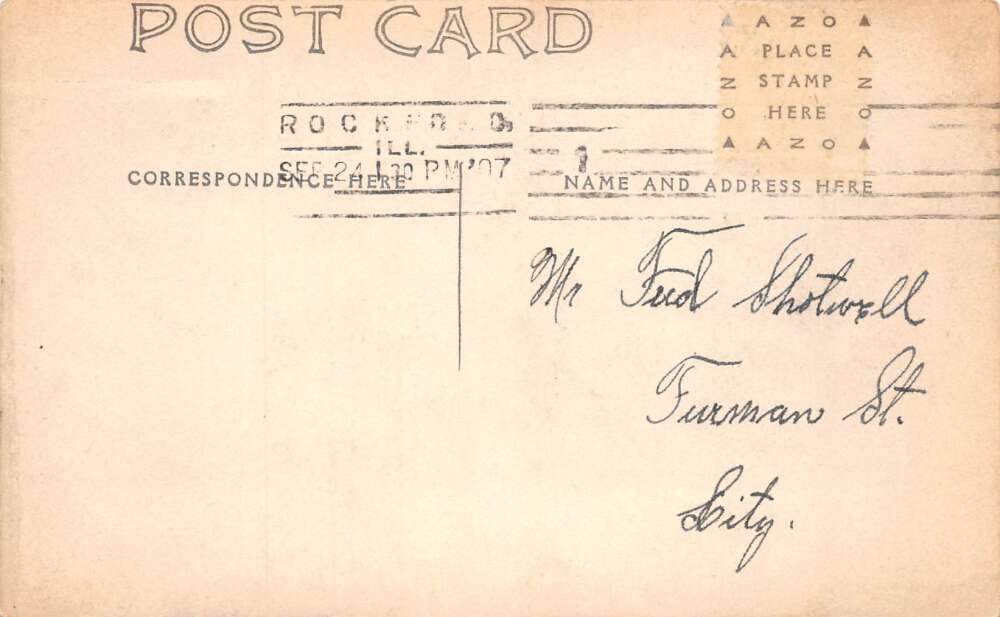 POST CARD
▲ A Z O ▲
A PLACE A
Z STAMP Z
O HERE O
▲ A Z O ▲
ROCKFORD,
ILL.
SEP 24 1 30 PM '07
1
CORRESPONDENCE HERE
NAME AND ADDRESS HERE
Mr Fred Shotwell
Furman St.
City.